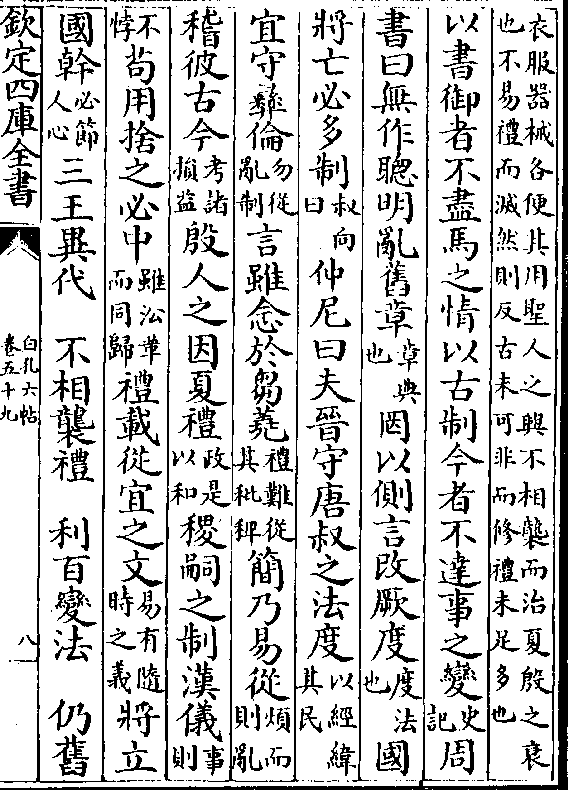 衣服器械各便其用聖人之興不相襲而治夏殷之衰
也不易禮而滅然則反古未可非而修禮未足多也
以書御者不盡馬之情以古制今者不達事之變史記周
書曰無作聰明亂舊章章典也罔以側言改厥度度法也國
將亡必多制叔向曰仲尼曰夫晉守唐叔之法度以經緯其民
宜守彝倫勿從亂制言雖念於芻蕘禮難從其秕稗簡乃易從煩而則亂
稽彼古今考諸損益殷人之因夏禮政是以和稷嗣之制漢儀事則
不悖苟用捨之必中雖㳂革而同歸禮載從宜之文易有隨時之義將立
國幹必節人心三王異代 不相襲禮 利百變法 仍舊
欽定四庫全書
白孔六帖
卷五十九
八